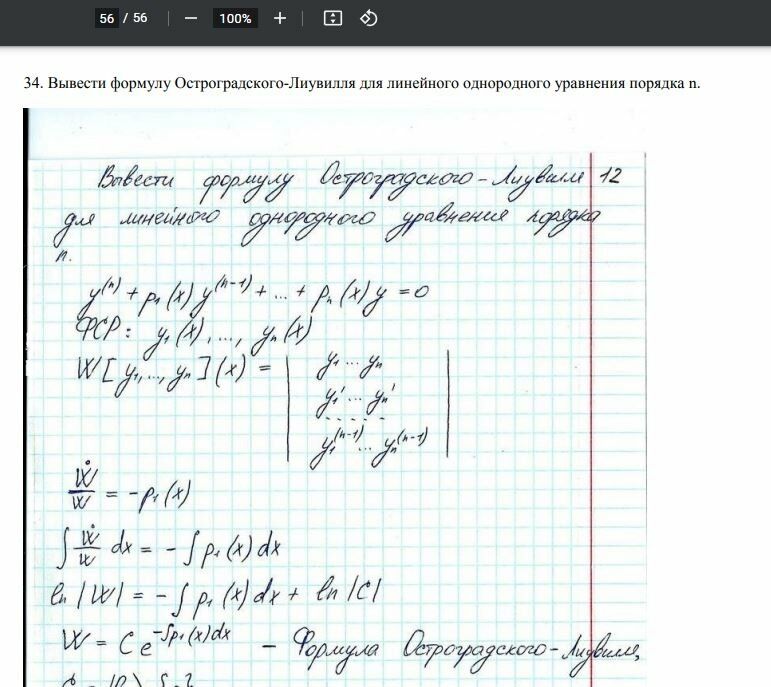 56 / 56
100%
34. Вывести формулу Остроградского-Лиувилля для линейного однородного уравнения порядка n.
Вывести формулу Остроградского-Лиувилля 12
для линейного однородного уравнения порядка
n.
y⁽ⁿ⁾ + p₁(x)y⁽ⁿ⁻¹⁾ + ... + pₙ(x)y = 0
ФСР: y₁(x), ..., yₙ(x)
W[y₁, ..., yₙ](x) = | y₁ ... yₙ |
| y₁' ... yₙ' |
| - - - - - |
| y₁⁽ⁿ⁻¹⁾ ... yₙ⁽ⁿ⁻¹⁾ |
Ẇ/W = -p₁(x)
∫ Ẇ/W dx = - ∫ p₁(x)dx
ln |W| = - ∫ p₁(x)dx + ln |C|
W = C e^(-∫p₁(x)dx) - Формула Остроградского-Лиувилля,